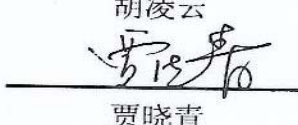 胡凌云
贾晓青
贾晓青